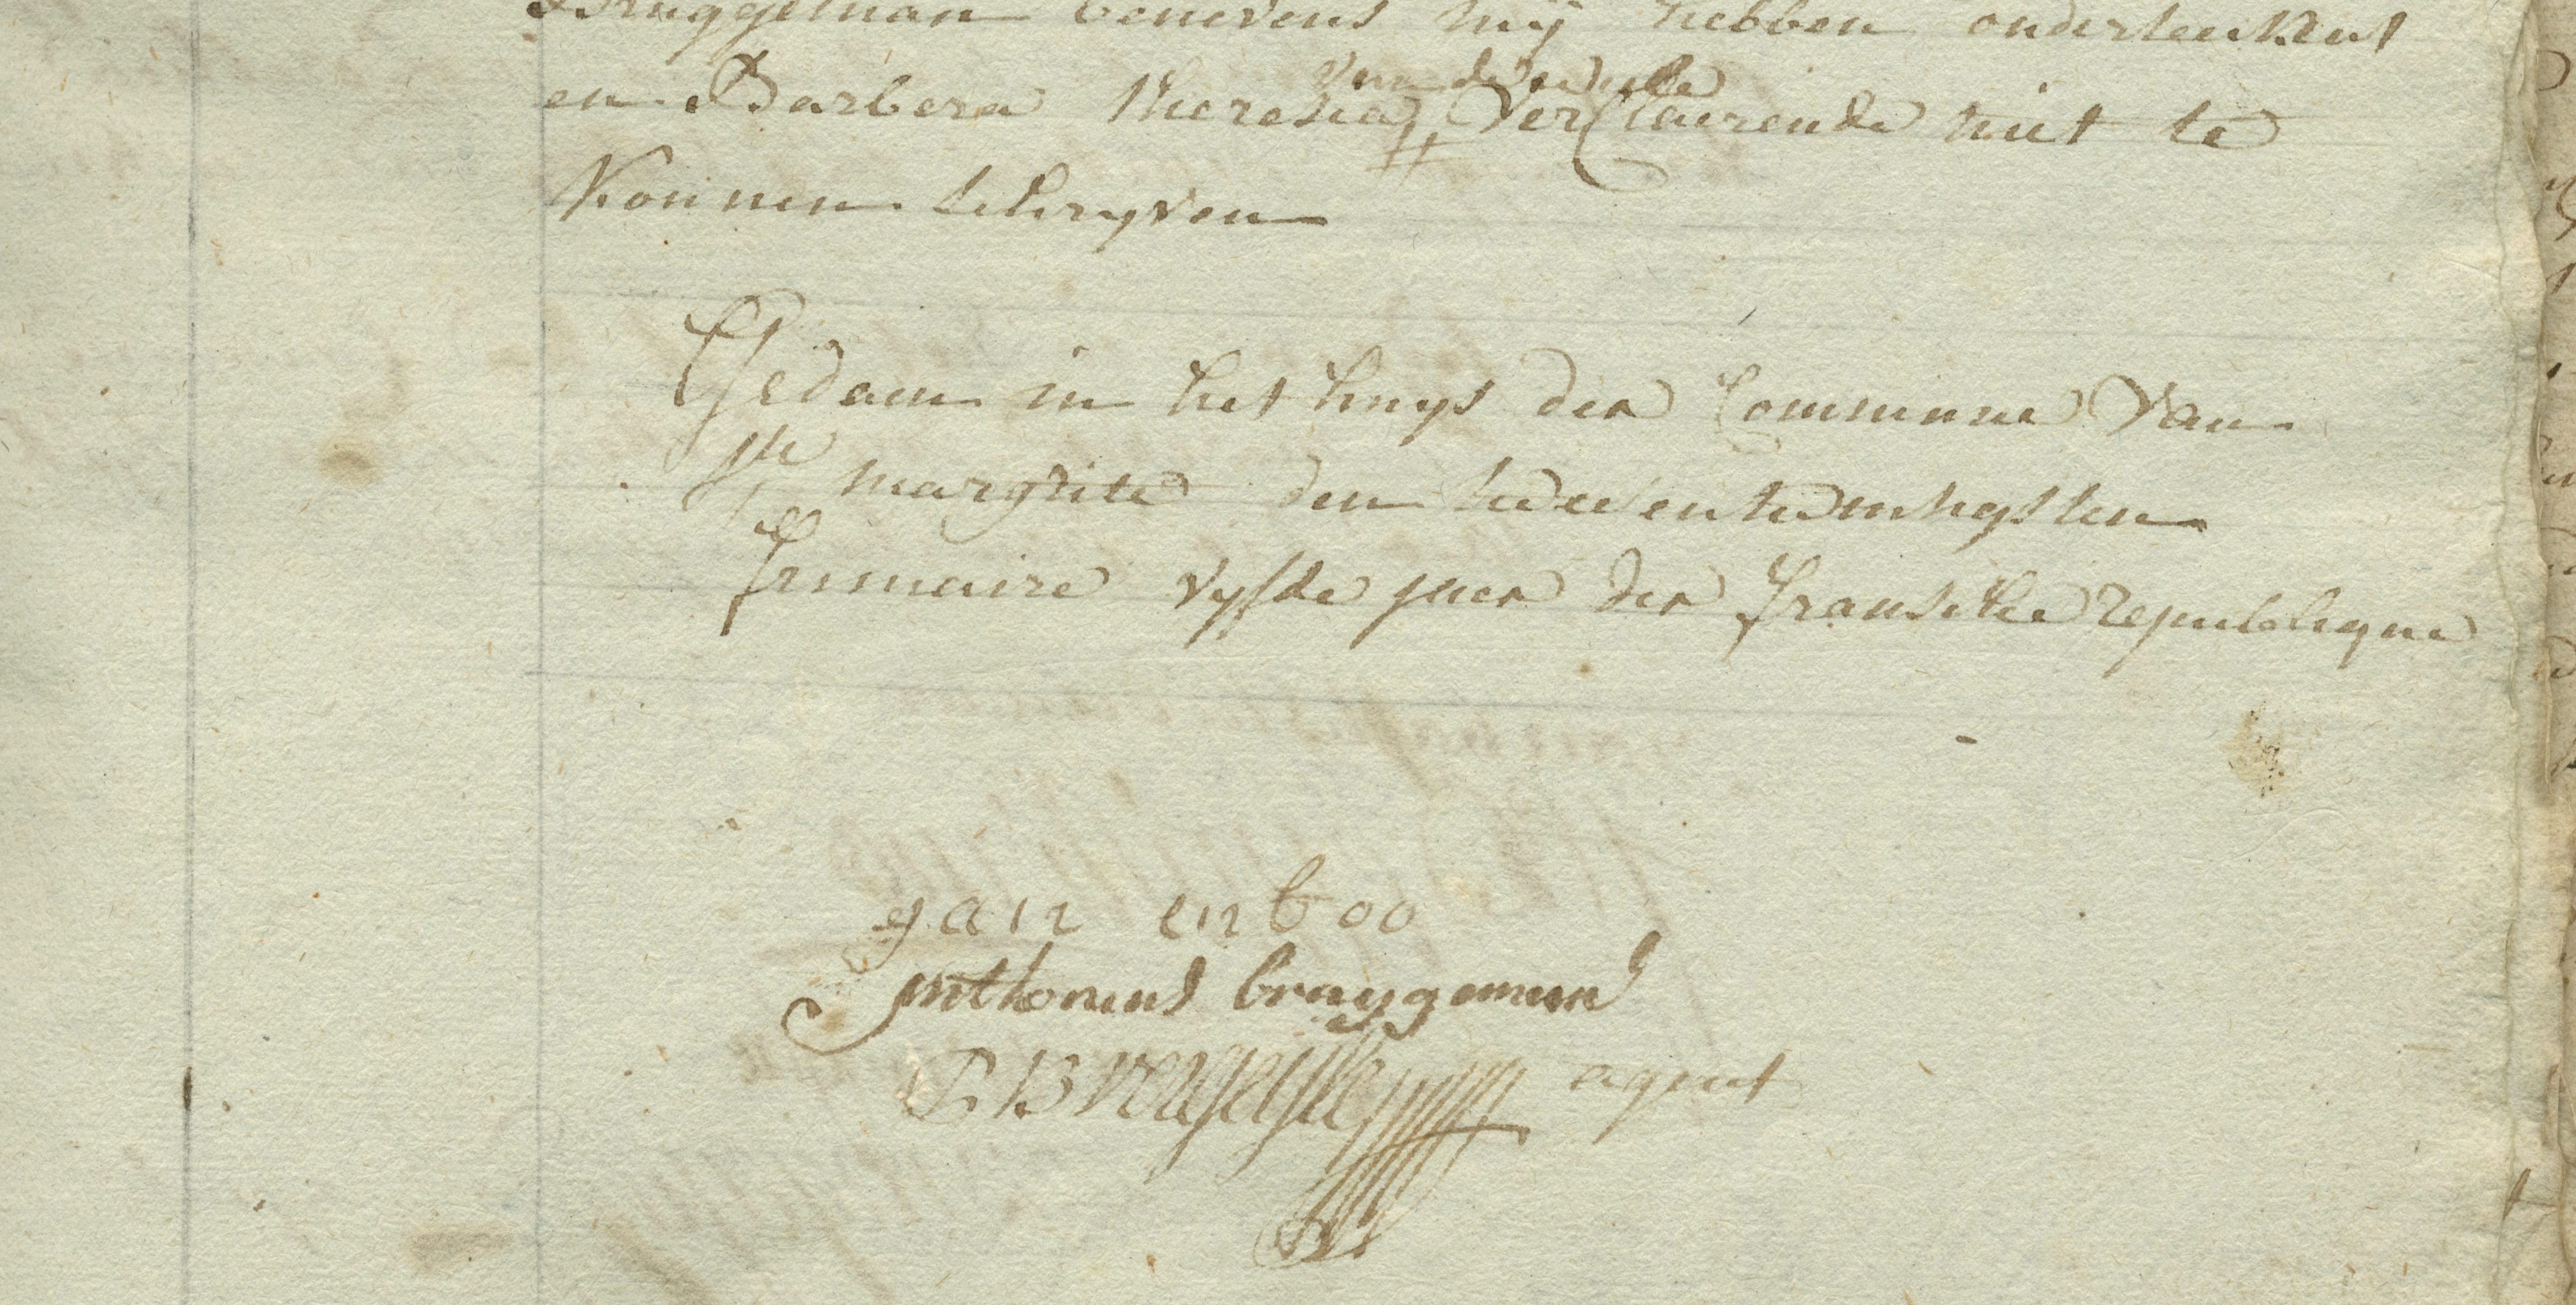 Bruggeman benevens my hebben onderteekent
en Barbera theresia van de velde verclaerende niet te
konnen schryven
Gedaen in het huys der Commune van
Ste margrite den tweeentwintigsten
frimaire vyfde jaer der fransche republique
jan enboo
anthoneus bruggeman
P B agent